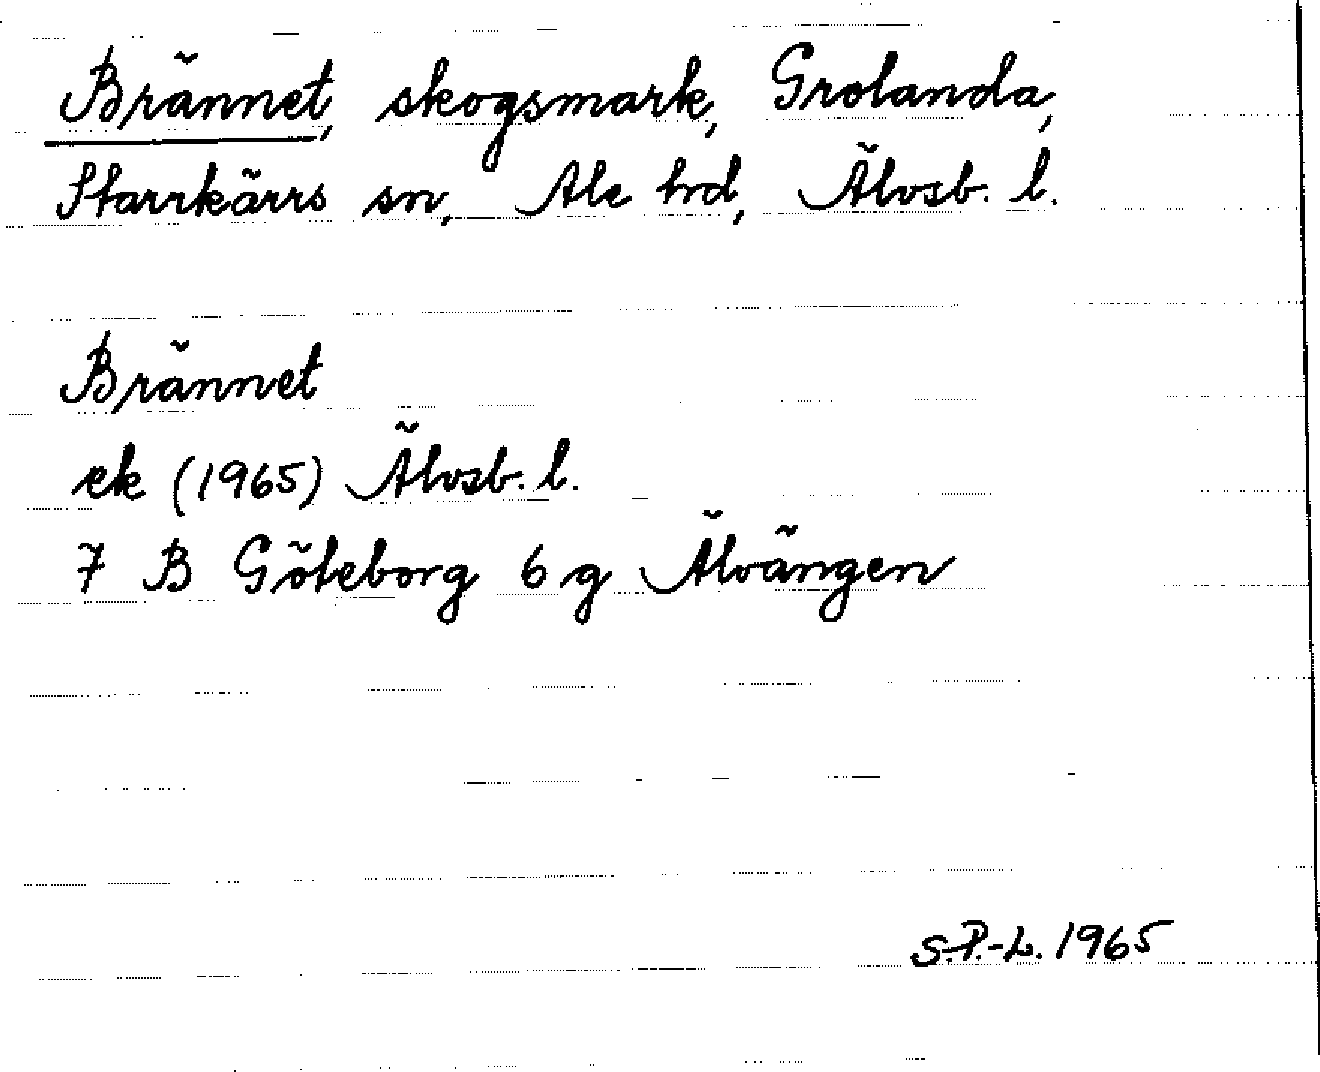 Brännet, skogsmark, Grolanda,
Starrkärrs sn, Ale hd, Älvsb. l.
Brännet
ek (1965) Älvsb. l.
7 B Göteborg 6 g Älvängen
S.P.-L. 1965